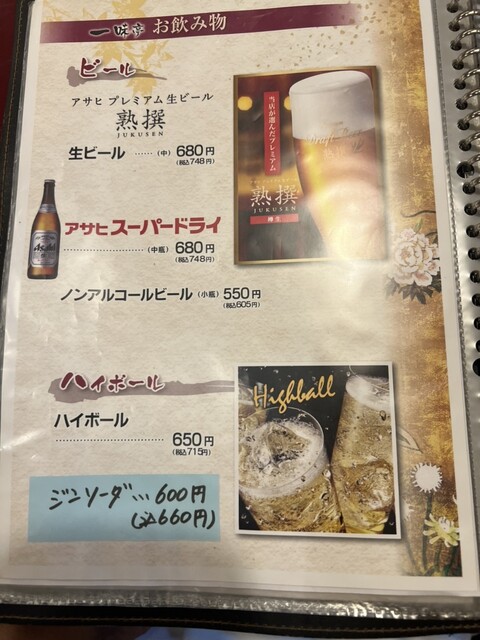 一味亭 お飲み物
ビール
アサヒ プレミアム生ビール
熟撰
JUKUSEN
生ビール ……（中）680円
（税込748円）
当店が選んだプレミアム
熟撰
JUKUSEN
樽生
アサヒスーパードライ
……（中瓶）680円
（税込748円）
Asahi
ノンアルコールビール（小瓶）550円
（税込605円）
ハイボール
ハイボール
……………… 650円
（税込715円）
Highball
ジンソーダ… 600円
（込660円）